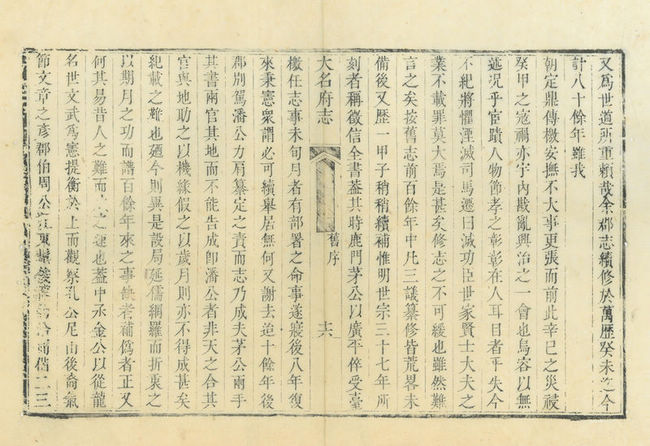 又爲世道所重賴哉余郡志續修於萬歷癸未迄今
計八十餘年雖我
朝定鼎傳檄安撫不大事更張而前此辛巳之災祲
癸甲之寇禍亦宇內戡亂興治之一會也烏容以無
述況乎宦蹟人物節孝之彰彰在人耳目者乎失今
不紀將懼湮滅司馬遷曰滅功臣世家賢士大夫之
業不載罪莫大焉是甚矣修志之不可緩也雖然難
言之矣按舊志前百餘年中凡三議纂修皆荒畧未
備後又歷一甲子稍稍續補惟明世宗三十七年所
刻者稱徵信全書葢其時鹿門茅公以廣平倅受臺
大名府志
舊序
十六
檄任志事未旬月者有部署之命事遂寢後八年復
來秉憲衆謂必可續舉居無何又謝去迨十餘年後
郡別駕潘公力肩纂定之責而志乃成夫茅公兩手
其書兩官其地而不能告成卽潘公者非天之合其
官與地助之以機緣假之以歲月則亦不得成甚矣
紀載之難也廼今則異是設局延儒網羅而折衷之
以期月之功而譜百餘年來之事缺者補僞者正又
何其易昔人之難而之速也葢中丞金公以從龍
名世文武爲憲提衡於上而觀察孔公尼山後裔氣
節文章之彥郡伯周公東二三